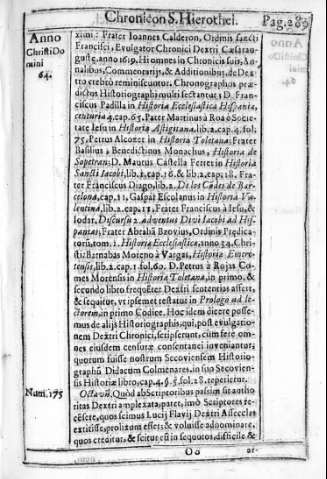 Chronicon S. Hierothei.
Pag. 289
Anno
Christi Do
mini
64.
ximi: Frater Ioannes Calderon, Ordinis sancti
Francisci, Evulgator Chronici Dextri Cæsaraugustæ
anno 1619. Hi omnes in Chronicis suis, Annalibus,
Commentarijs, & Additionibus, de Dextro
crebrò reminiscuntur. Chronographos prædictos
Historiographi multi sectantur: D. Franciscus
Padilla in Historia Ecclesiastica Hispaniæ,
centuria 4. cap. 65. Pater Martinus à Roa è Societate
Iesu in Historia Astigitana, lib. 2. cap. 4. fol.
75. Petrus Alcocer in Historia Toletana: Frater
Basilius, Benedictinus Monachus, Historia de
Sopetran: D. Maurus Castella Ferrer in Historia
Sancti Iacobi, lib. 2. cap. 16. & lib. 2. cap. 18. Frater
Franciscus Diago, lib. 2. De los Cõdes de Barcelona,
cap. 11. Gaspar Escolanus in Historia Valentina,
lib. 2. cap. 11. Frater Franciscus à Iesu, &
Iodar, Discursu 2. adventus Divi Iacobi ad Hispanias;
Frater Abrahã Bzovius, Ordinis Prædicatoris,
tom. 1. Historiæ Ecclesiasticæ, anno 34. Christi:
Barnabas Moreno à Vargas, Historia Emeritensis,
lib. 2. cap. 1. fol. 60. D. Petrus à Rojas Comes
Morensis in Historia Toletana, in primo, &
secundo libro frequẽter Dextri sententis asseret,
& sequitur, vt ipsemet testatur in Prologo ad lectorem,
in primo Codice. Hoc idem dicere possemus
de alijs Historiographis, qui, post evulgationem
Dextri Chronici, scripserunt, cùm fere omnes
eiusdem censuræ consentanei inveniantur;
quorum fuisse nostrum Secoviensem Historiographũ
Didacum Colmenares, in suo Secoviensis
Historiæ libro, cap. 4. §. 5. fol. 28. reperietur.
Num. 175
Octavũ. Quòd ab Scriptoribus passim sit authoritas
Dextri amplexata, patet, imò Scriptores recẽsere,
quos scimus Lucij Flavij Dextri Asseclas
extitisse, prolixum esset; & voluisse adnominare,
quos creditur, & scitur esse in sequutos, difficile &
Oo